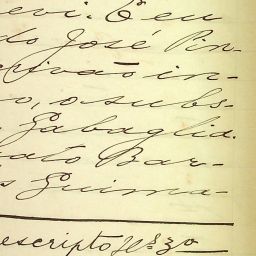 evi. E eu
do José Pin-
crivão in-
o, o subs-
Gabaglia.
ato Bar-
s Guima-
escripto fls 30